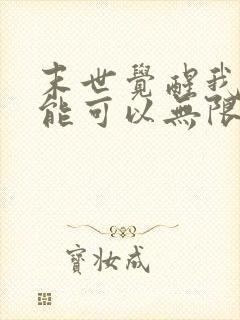 末世覺醒我
能可以無限
寶妝成